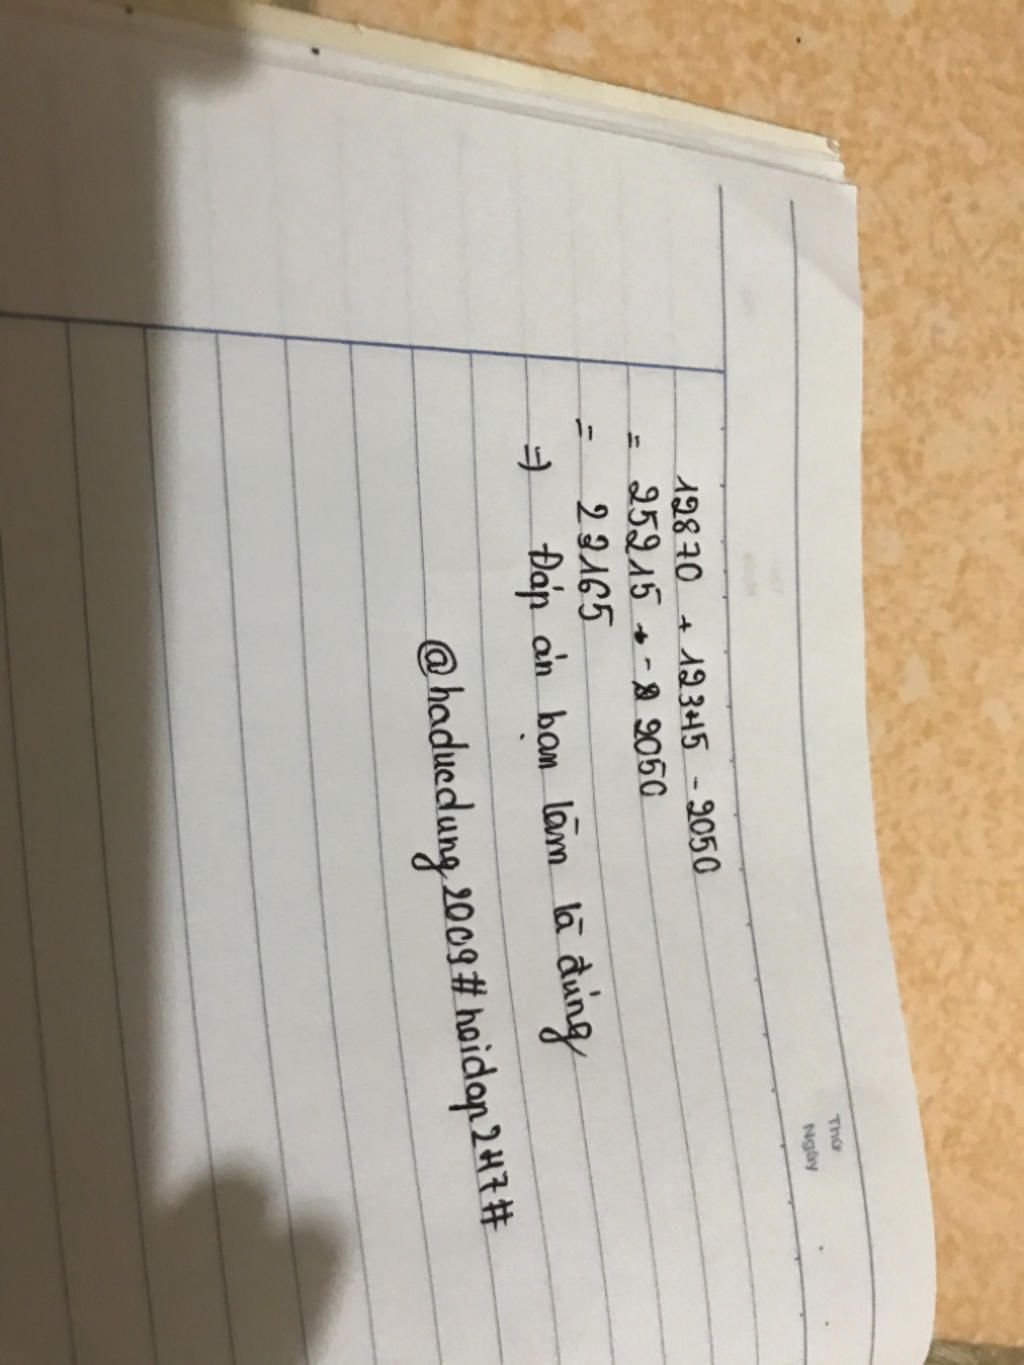 Thứ
Ngày
12870 + 12345 - 2050
= 25215 - 2050
= 23165
=) Đáp án bạn làm là đúng
@haducdung2009#hoidap247#